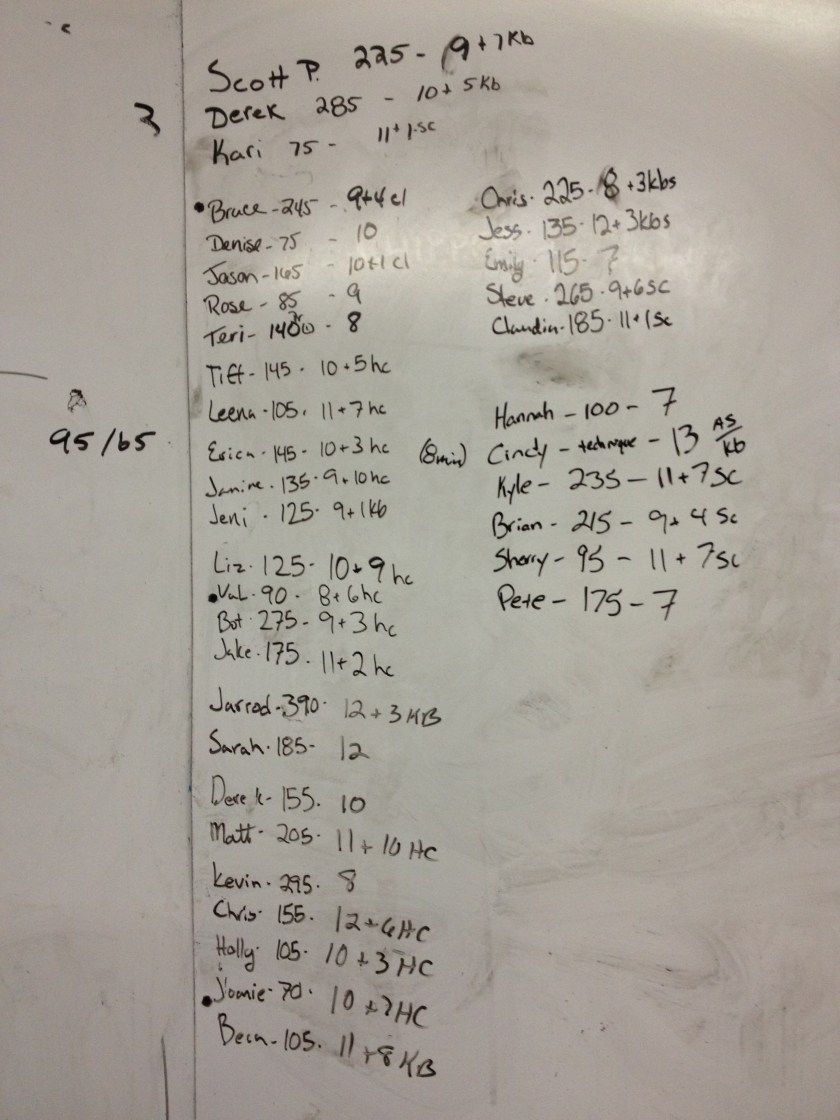 Scott P. 225 - 9+7Kb
Derek 285 - 10+5Kb
3
Kari 75 - 11+1.sc
Bruce - 245 - 9+4cl
Denise - 75 - 10
Jason - 165 - 10+1cl
Rose - 85 - 9
Teri - - 8
Tiff - 145 - 10+5hc
Leena - 105. 11+7hc
95/65
Erica - 145 - 10+3hc
Janine. 135. 9+10hc
Jeni. 125. 9+1Kb
Liz. 125 - 10+9hc
Val. 90. 8+6hc
275 - 9+3hc
Jake. 175. 11+2hc
Jarrod - 390. 12+3KB
Sarah. 185 - 12
Derek - 155. 10
Matt - 205. 11+10HC
Kevin. 295. 8
Chris. 155. 12+6HC
Holly. 105. 10+3HC
Jamie - 70. 10+7HC
105. 11+8KB
Chris. 225 - 8+3kbs
Jess. 135. 12+3kbs
Emily. 115 - 7
Steve. 265. 9+6sc
Claudia. 185. 11+1sc
Hannah - 100 - 7
(8min) Cindy - technique - 13 AS/kb
Kyle - 235 - 11+7sc
Brian - 215 - 9+4sc
Sherry - 95 - 11+7sc
Pete - 175 - 7